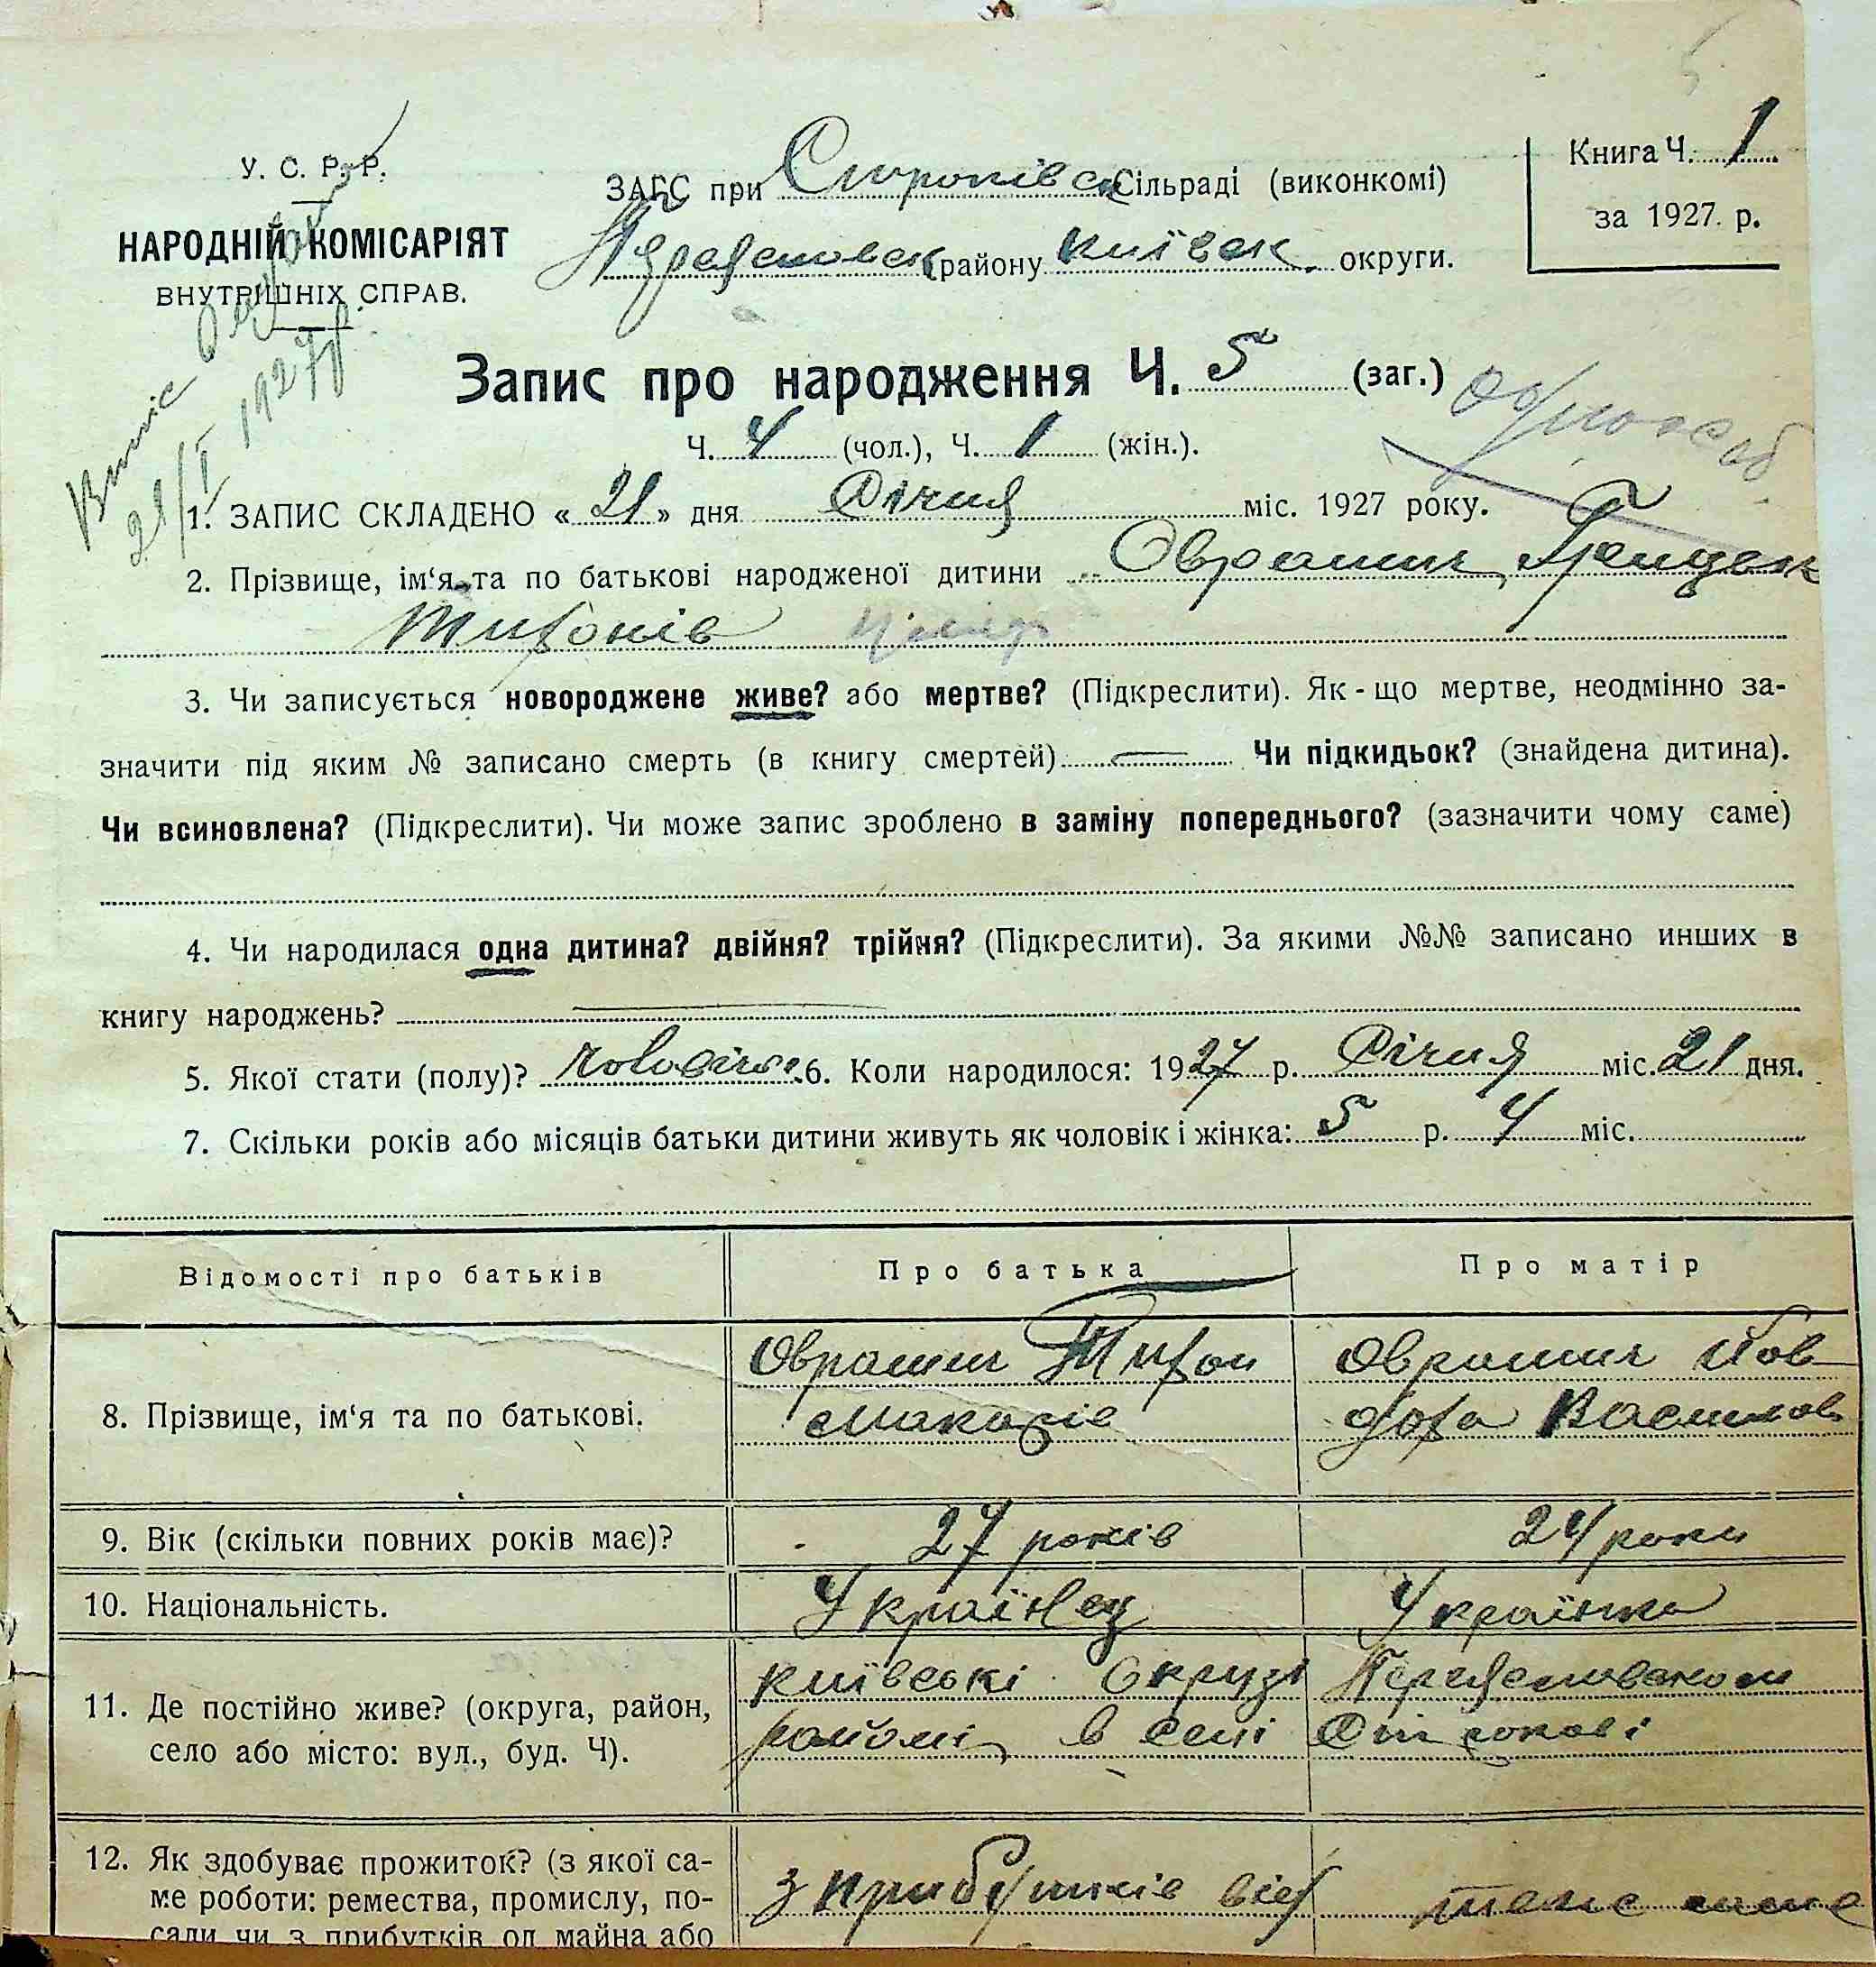 У. С. Р. Р.
НАРОДНІЙ КОМІСАРІЯТ
ВНУТРІШНІХ СПРАВ.
Випис
21/I 1927р
ЗАГС при Строківск Сільраді (виконкомі)
району Київськ. округи.
Книга Ч. 1
за 1927. р.
Запис про народження Ч. 5 (заг.)
Ч. 4 (чол.), Ч. 1 (жін.).
1. ЗАПИС СКЛАДЕНО « 21 » дня Січня міс. 1927 року.
2. Прізвище, ім‘я та по батькові народженої дитини Оврашин
Тихонів
3. Чи записується новороджене живе? або мертве? (Підкреслити). Як - що мертве, неодмінно за-
значити під яким № записано смерть (в книгу смертей) — Чи підкидьок? (знайдена дитина).
Чи всиновлена? (Підкреслити). Чи може запис зроблено в заміну попереднього? (зазначити чому саме)
4. Чи народилася одна дитина? двійня? трійня? (Підкреслити). За якими №№ записано инших в
книгу народжень? —
5. Якої стати (полу)? 6. Коли народилося: 1927 р. Січня міс. 21 дня.
7. Скільки років або місяців батьки дитини живуть як чоловік і жінка: 5 р. 4 міс.
Відомості про батьків
Про батька
Про матір
8. Прізвище, ім‘я та по батькові.
Оврашин Тихон
Макарів
Оврашин Йов
доха Васильов
9. Вік (скільки повних років має)?
27 років
24 роки
10. Національність.
Українец
Українка
11. Де постійно живе? (округа, район,
село або місто: вул., буд. Ч).
Київські Окрузі
районі в селі Строкові
12. Як здобуває прожиток? (з якої са-
ме роботи: ремества, промислу, по-
сади чи з прибутків од майна або
з прибутків від
теж саме